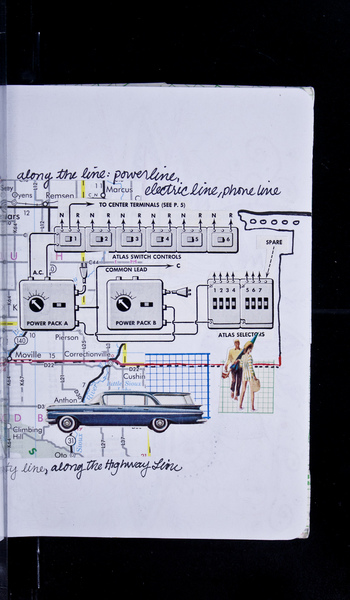 along the line: powerline,
electric line, phone line
Oyens Remsen Marcus
TO CENTER TERMINALS (SEE P. 5)
N R N R N R N R N R N R
1 2 3 4 5 6
ATLAS SWITCH CONTROLS
C
SPARE
A.C.
COMMON LEAD
1 2 3 4 5 6 7
POWER PACK A
POWER PACK B
ATLAS SELECTORS
Pierson
140
Moville 15 Correctionville
D22
D22
Cushin
Anthon
D3
D B
Climbing
Hill
31
Oto
S
ty line, along the Highway Line